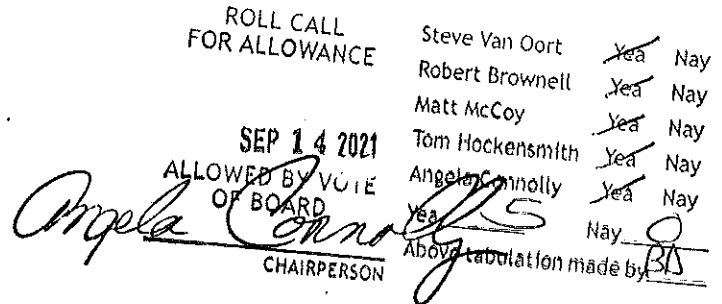 ROLL CALL
FOR ALLOWANCE
SEP 14 2021
ALLOWED BY VOTE
OF BOARD
Angela Connolly
CHAIRPERSON
Steve Van Oort Yea Nay
Robert Brownell Yea Nay
Matt McCoy Yea Nay
Tom Hockensmith Yea Nay
Angela Connolly Yea Nay
Yea 5 Nay 0
Above tabulation made by BD